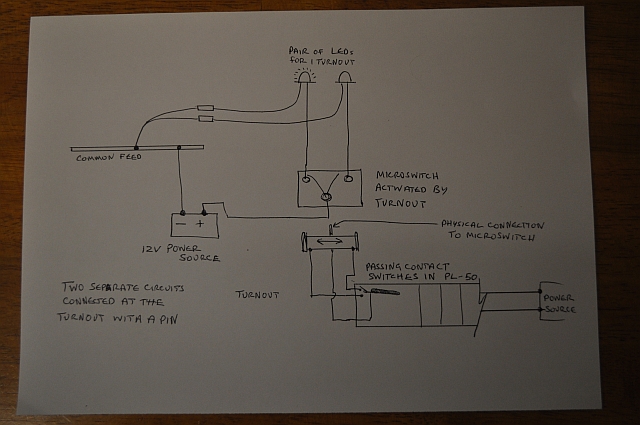 PAIR OF LEDs
FOR 1 TURNOUT
COMMON FEED
MICROSWITCH
ACTIVATED BY
TURNOUT
- +
12V POWER
SOURCE
PHYSICAL CONNECTION
TO MICROSWITCH
PASSING CONTACT
SWITCHES IN PL-50
TURNOUT
POWER
SOURCE
TWO SEPARATE CIRCUITS
CONNECTED AT THE
TURNOUT WITH A PIN